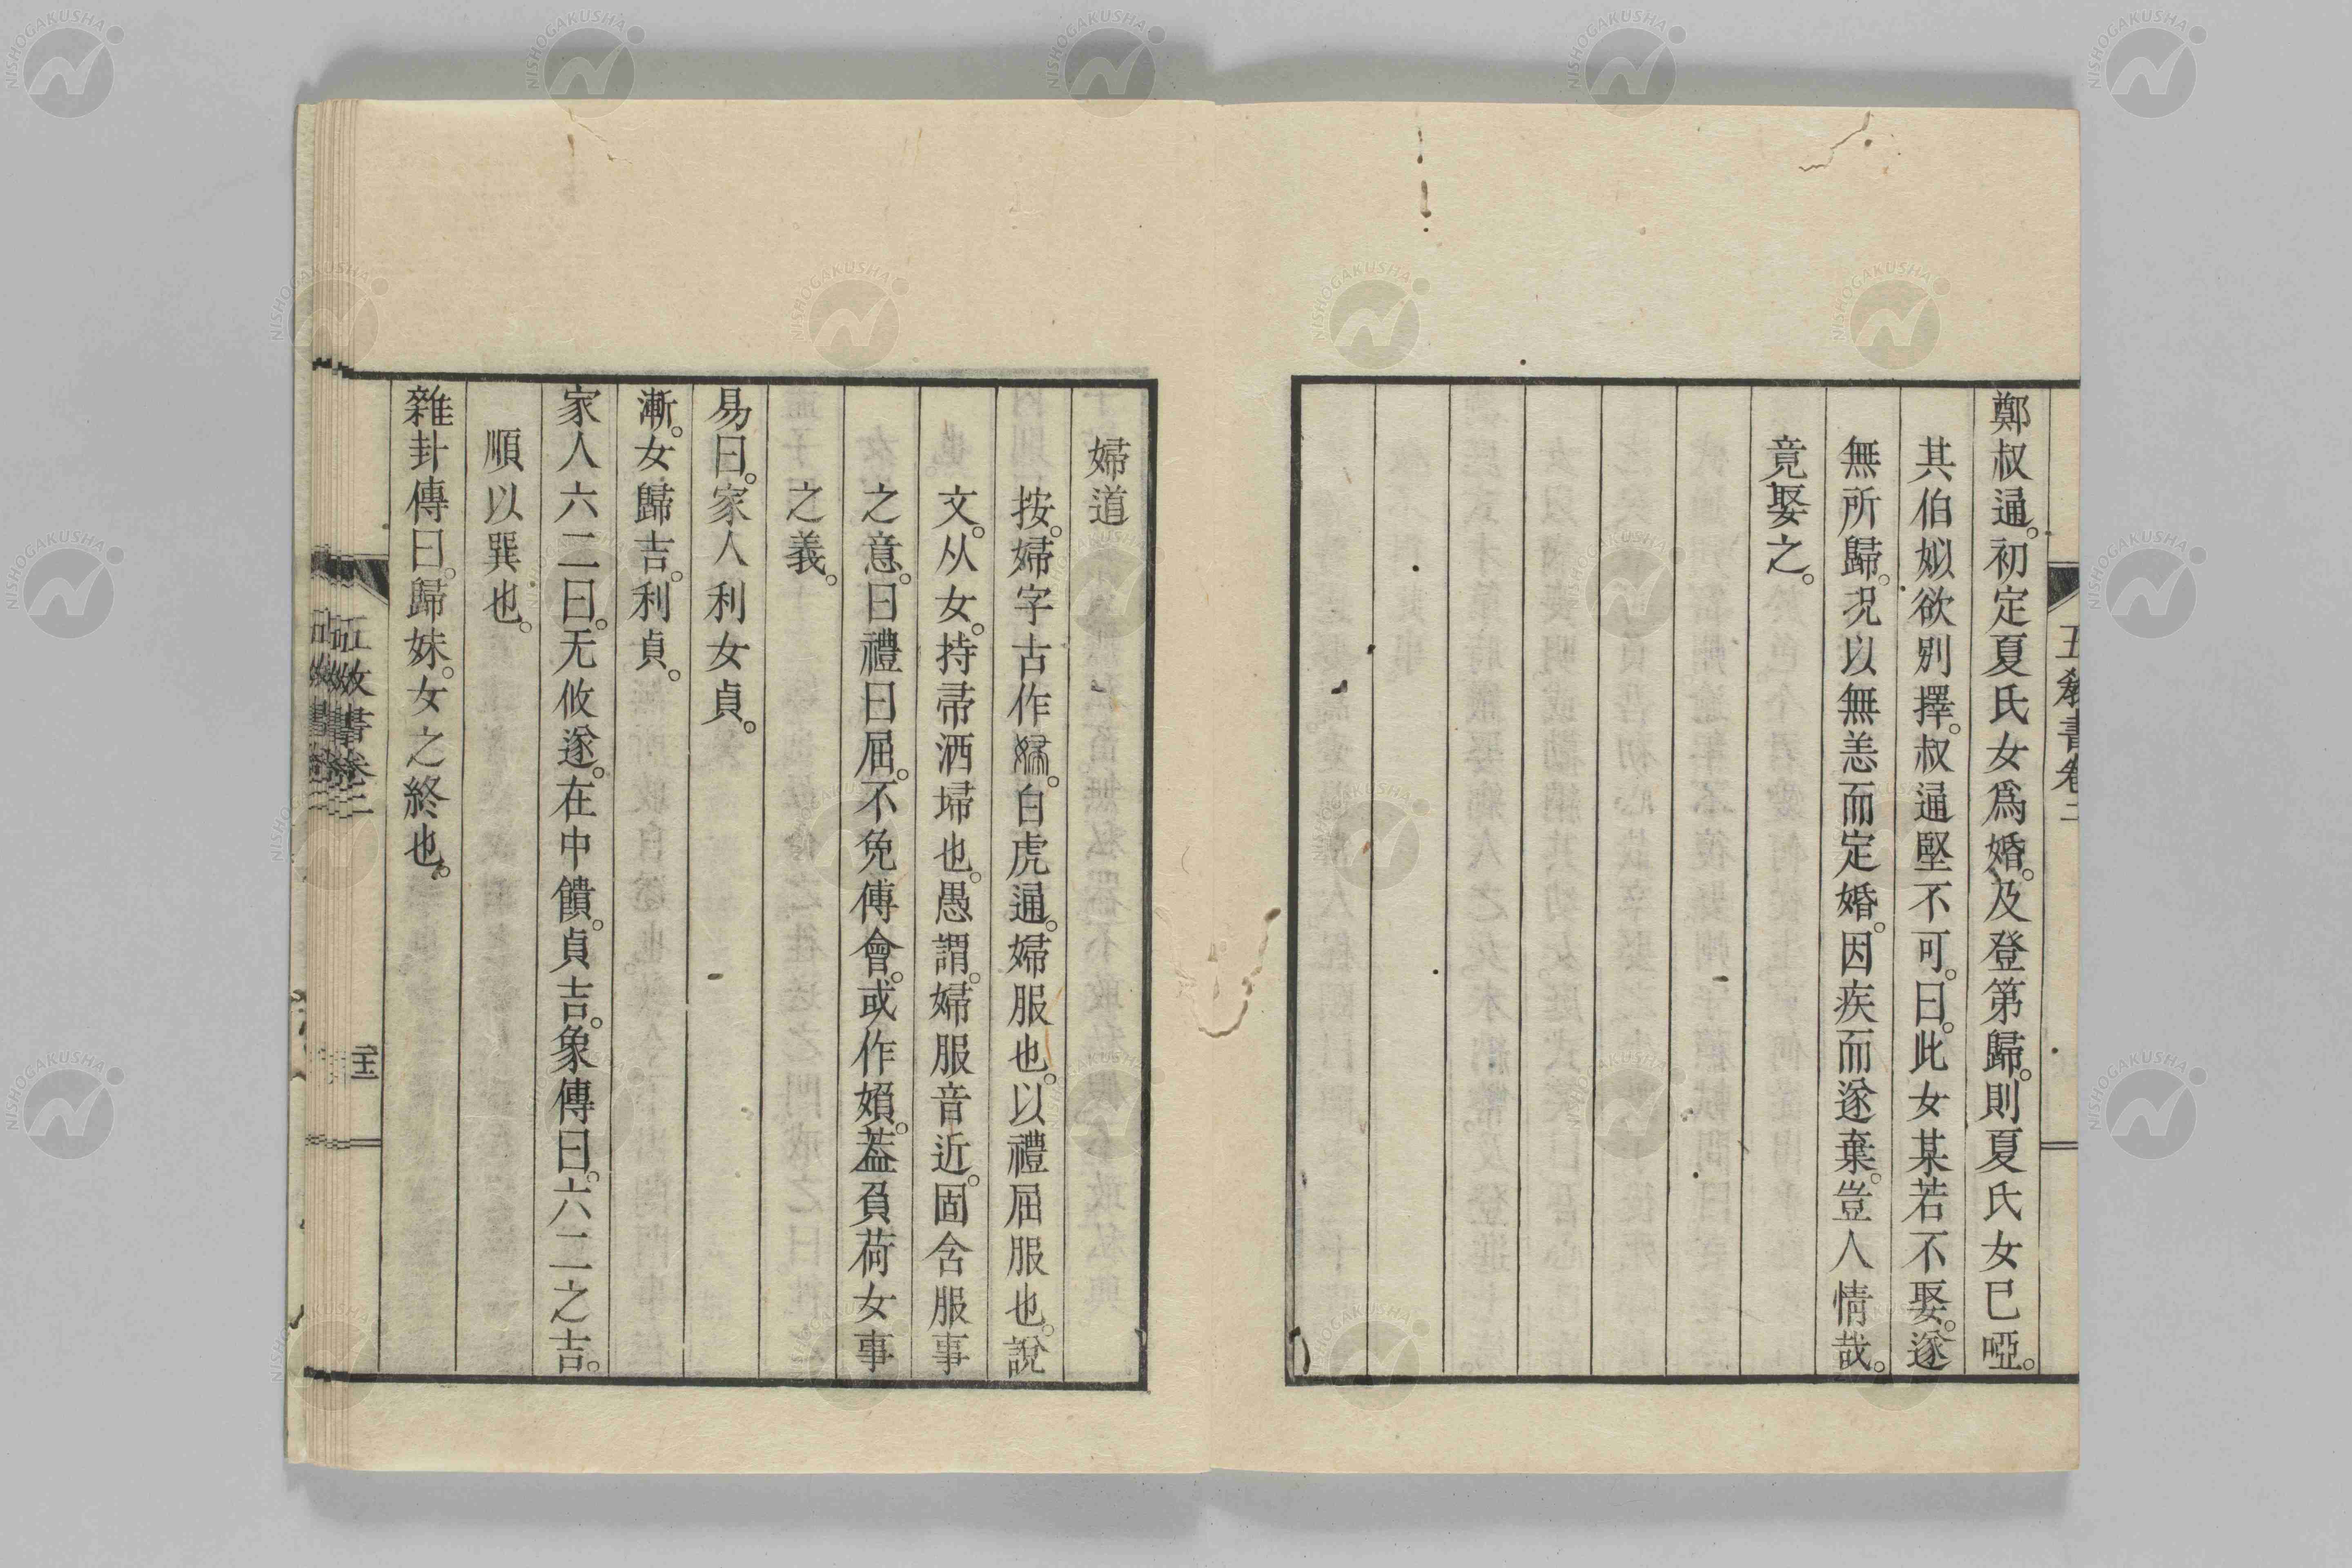 五教書卷二
鄭叔通。初定夏氏女爲婚。及登第歸。則夏氏女已啞。
其伯姒欲別擇。叔通堅不可。曰。此女某若不娶。遂
無所歸。况以無恙而定婚。因疾而遂棄。豈人情哉。
竟娶之。
婦道
按。婦字古作。白虎通。婦服也。以禮屈服也。說
文。从女。持帚洒埽也。愚謂。婦服音近。固含服事
之意。曰禮曰屈。不免傅會。或作媍。葢負荷女事
之義。
易曰。家人利女貞。
漸。女歸吉。利貞。
家人六二曰。无攸遂。在中饋。貞吉。象傳曰。六二之吉。
順以巽也。
雜卦傳曰。歸妹。女之終也。
五教書卷二
NISHOGAKUSHA